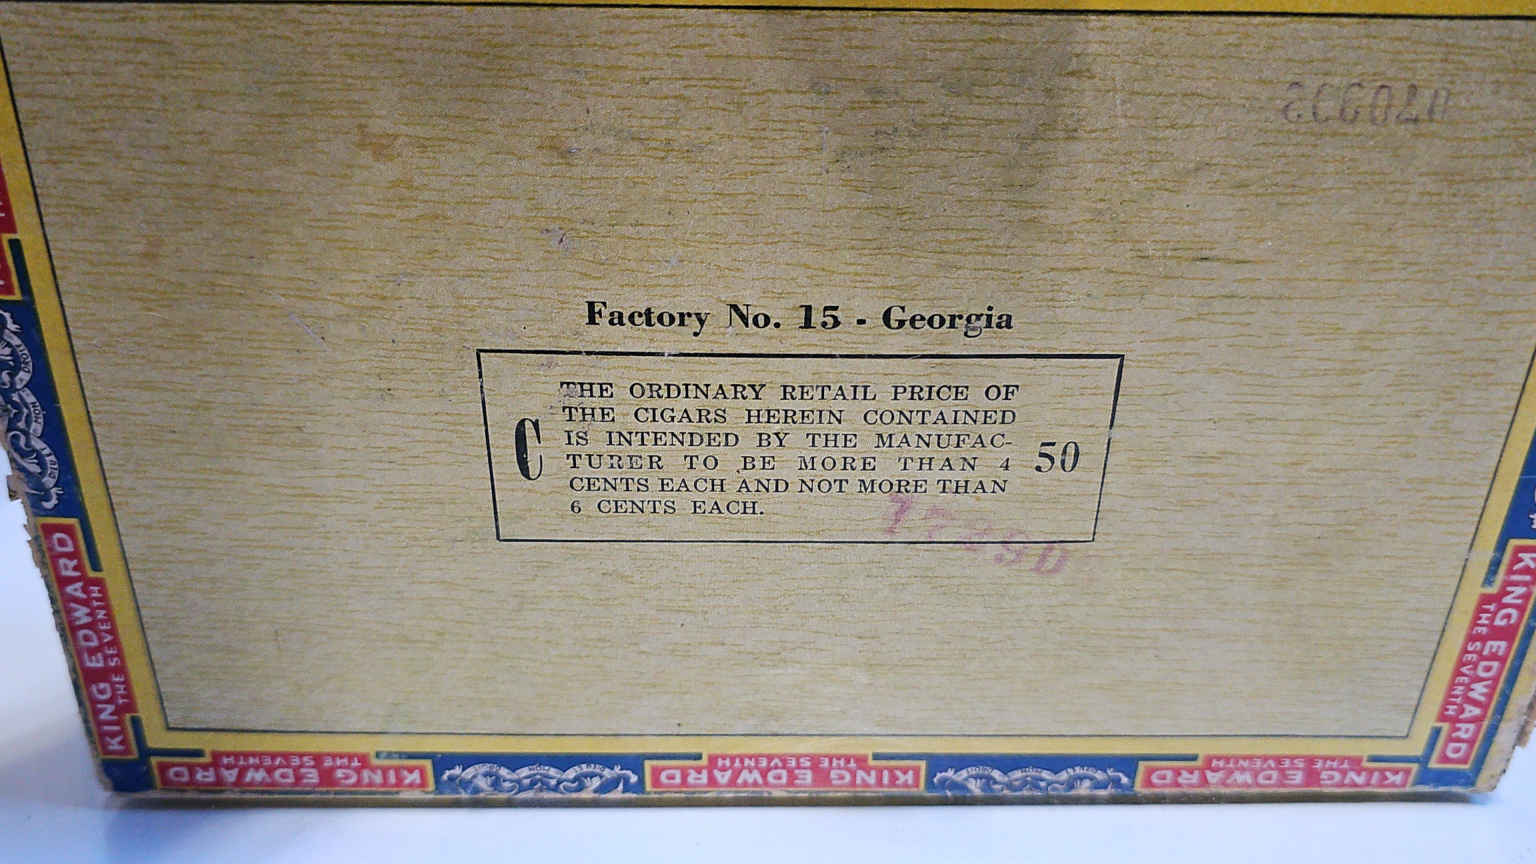 Factory No. 15 - Georgia
THE ORDINARY RETAIL PRICE OF
THE CIGARS HEREIN CONTAINED
IS INTENDED BY THE MANUFAC-
TURER TO BE MORE THAN 4
CENTS EACH AND NOT MORE THAN
6 CENTS EACH.
C
50
KING EDWARD
THE SEVENTH
KING EDWARD
THE SEVENTH
KING EDWARD
THE SEVENTH
KING EDWARD
THE SEVENTH
KING EDWARD
THE SEVENTH